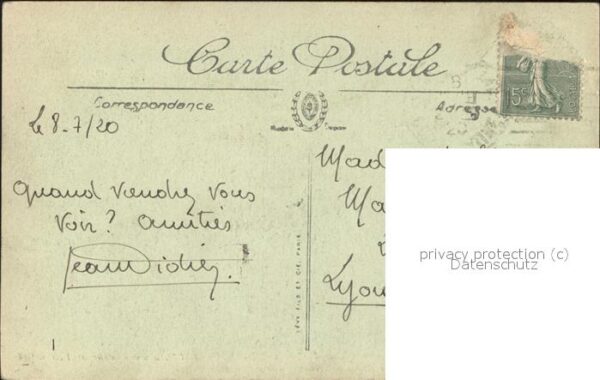 Carte Postale
Correspondance
Adresse
15c
le 8-7/20
Quand viendrez vous
voir? amitiés
Jean Didier.
LÉVY FILS ET CIE, PARIS
Mad
Ma
Lyon
privacy protection (c)
Datenschutz